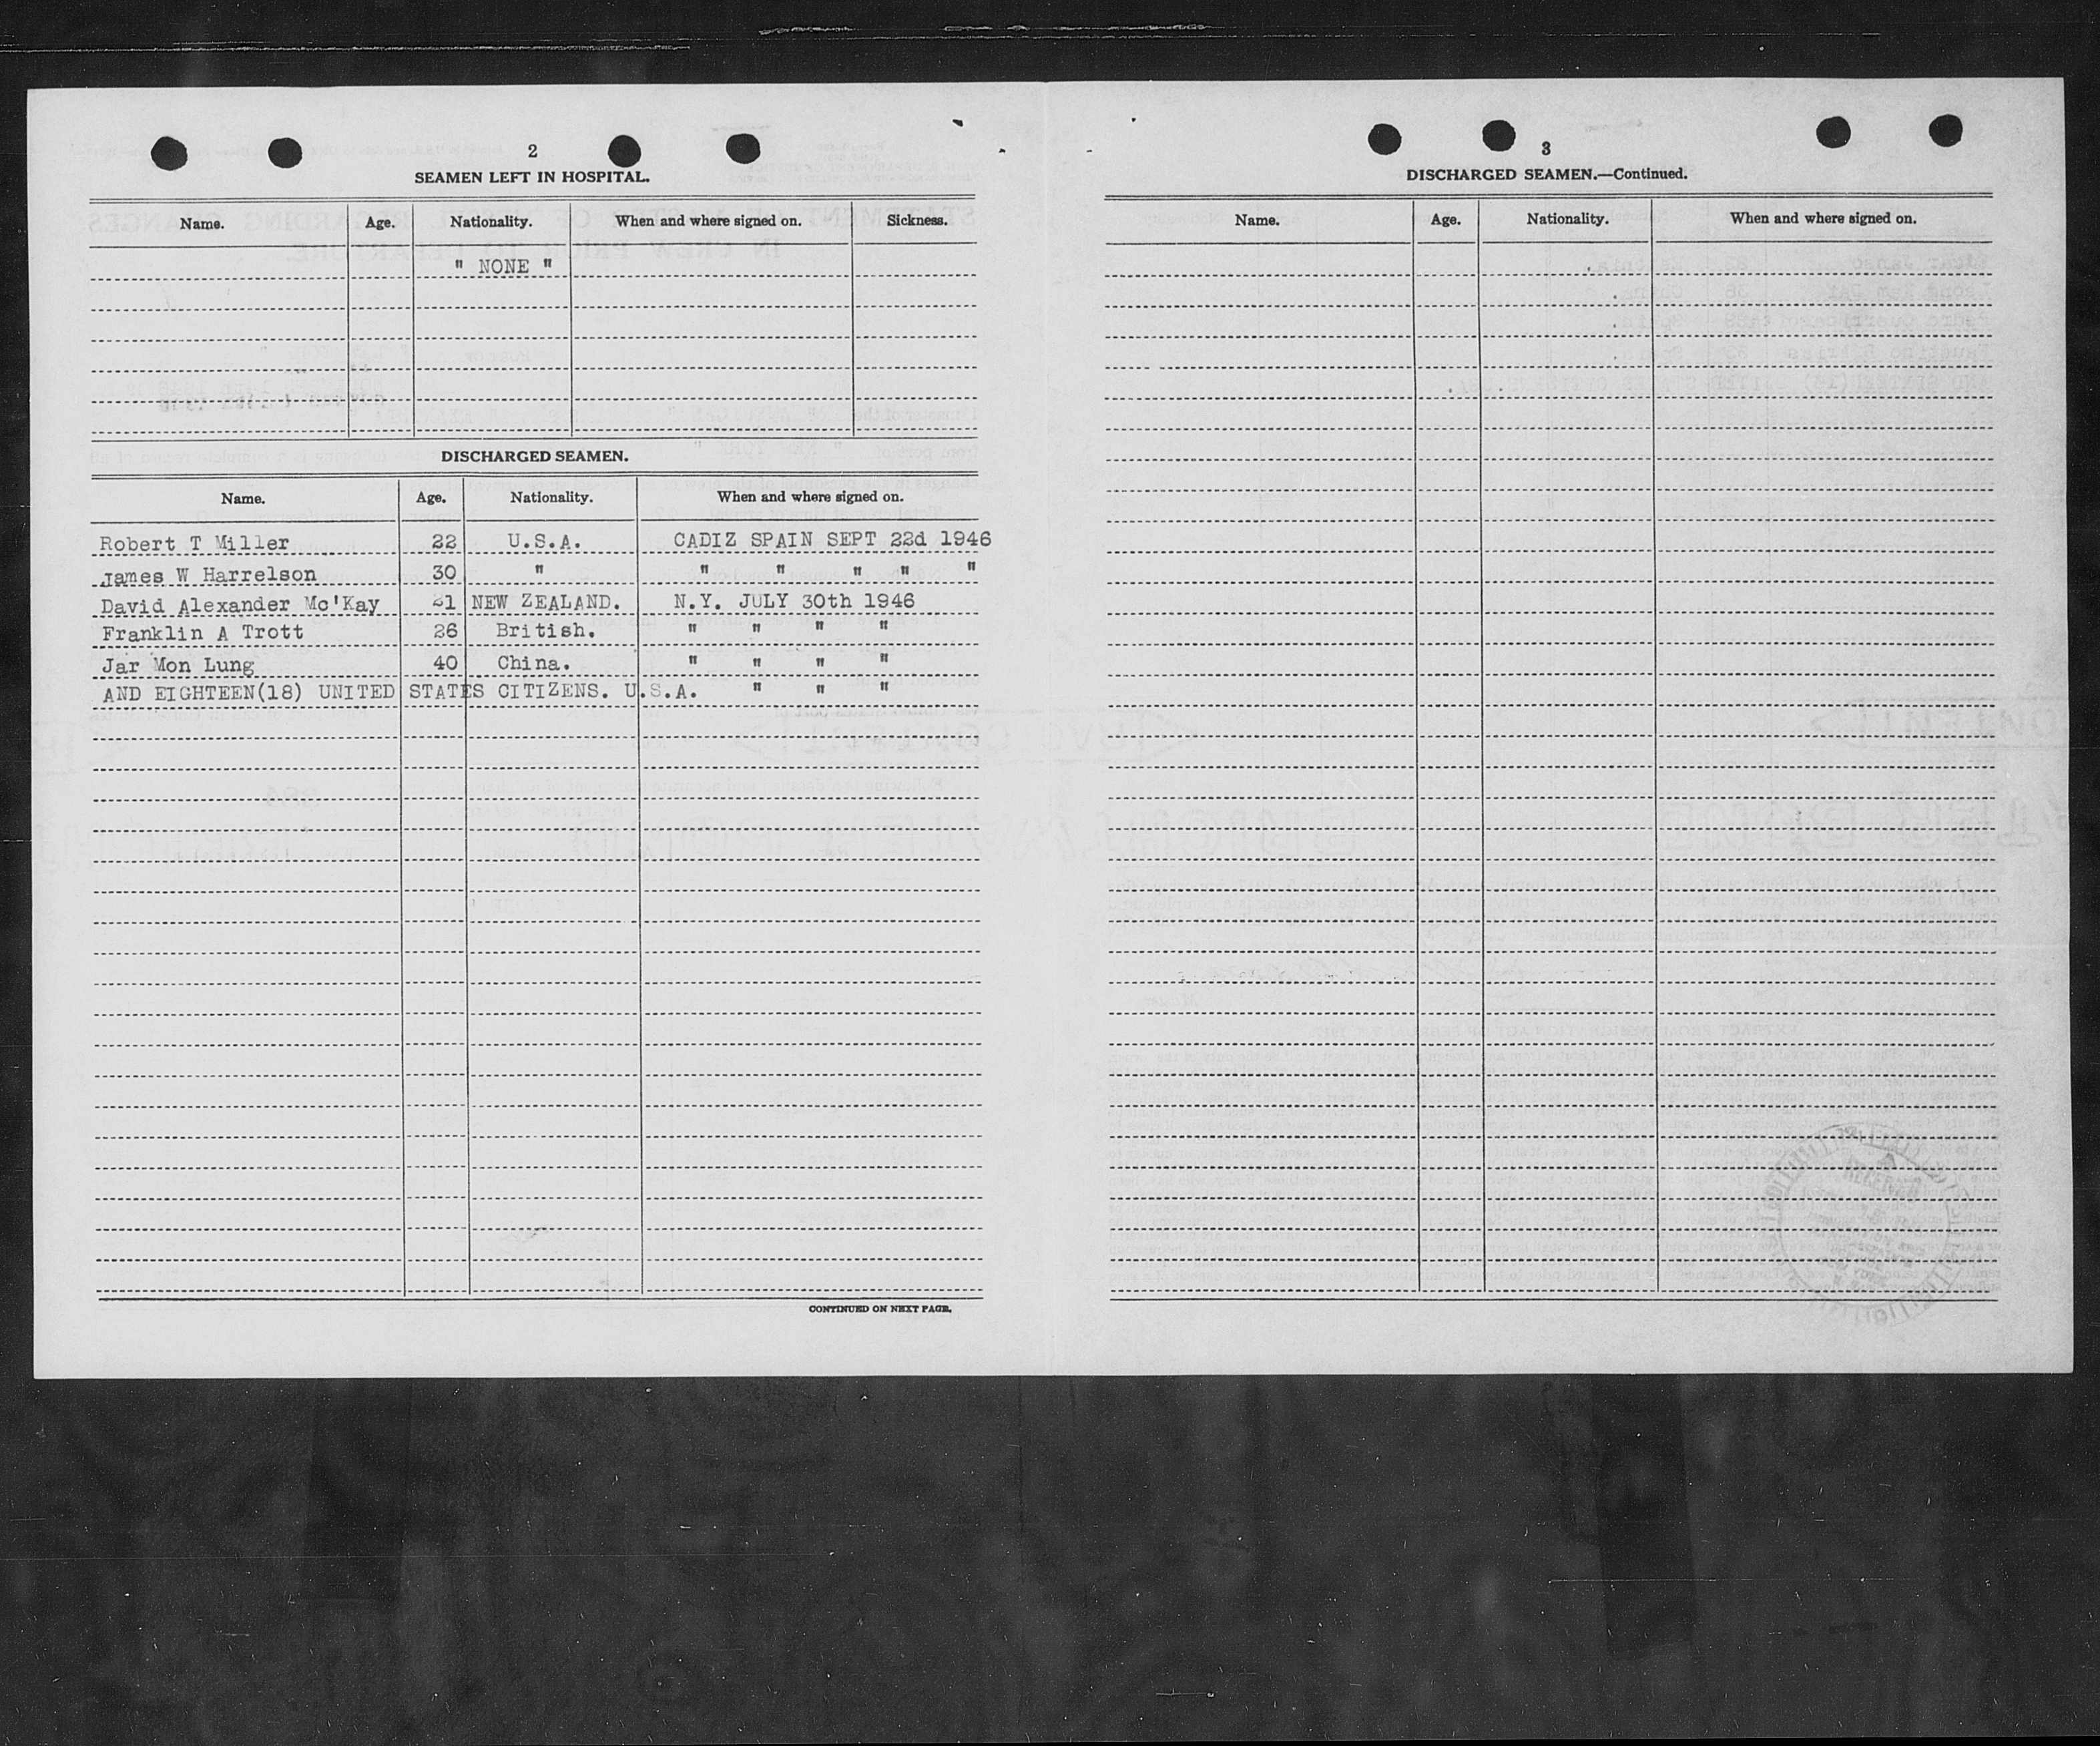 2
SEAMEN LEFT IN HOSPITAL.
Name. Age. Nationality. When and where signed on. Sickness.
" NONE "
DISCHARGED SEAMEN.
Name. Age. Nationality. When and where signed on.
Robert T Miller 22 U.S.A. CADIZ SPAIN SEPT 22d 1946
James W Harrelson 30 " " " " " "
David Alexander Mc'Kay 21 NEW ZEALAND. N.Y. JULY 30th 1946
Franklin A Trott 26 British. " " " "
Jar Mon Lung 40 China. " " " "
AND EIGHTEEN(18) UNITED STATES CITIZENS. U.S.A. " " "
CONTINUED ON NEXT PAGE.
3
DISCHARGED SEAMEN.—Continued.
Name. Age. Nationality. When and where signed on.